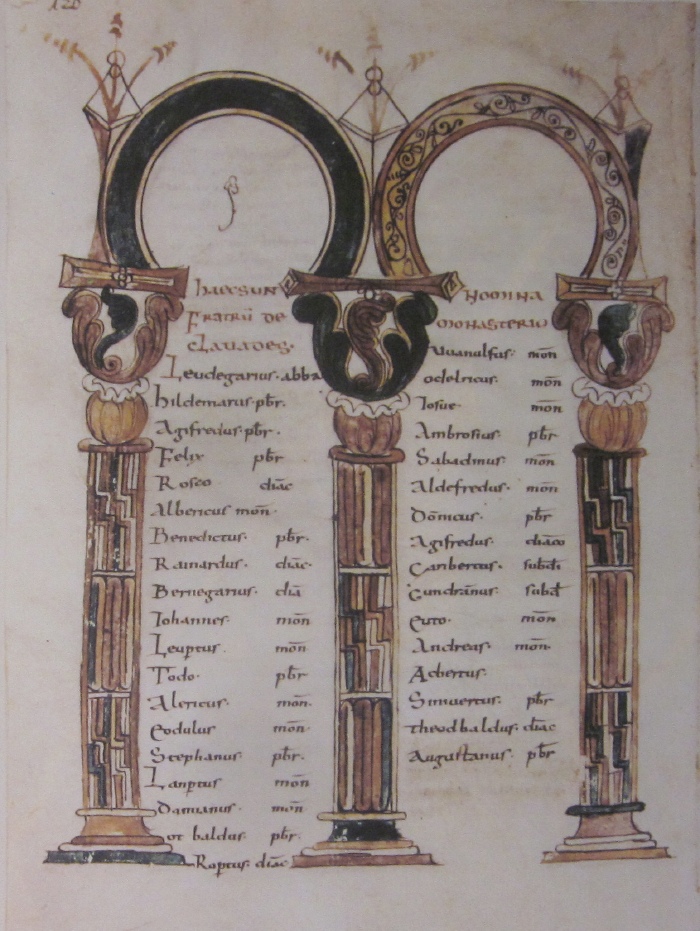 haec sunt
Fratrū de
clavades.
Leudegarius. abba
hildemarus. pbr.
Agifredus. pbr.
Felix pbr
Rosco diāc
Albericus mōn.
Benedictus pbr.
Rainardus. diāc.
Bernegarius. diā
Iohannes. mōn
Leuptus mōn
Todo. pbr
Alericus mōn.
eodulus mōn
Stephanus pbr.
Lanptus mōn
Damianus. mōn
ot baldus pbr.
Roptus. diāc
nomina
monasterio
Vuanulfus. mōn
odelricus. mōn
Iosue mōn
Ambrosius. pbr
Sabadinus. mōn
Aldefredus. mōn
Dōnicus. pbr
Agifredus. diāco
Caribertus. subdi
Gundrānus. subd
euto. mōn
Andreas. mōn.
Acbertus.
Simuertus. pbr
theodbaldus. diāc
Augustanus. pbr